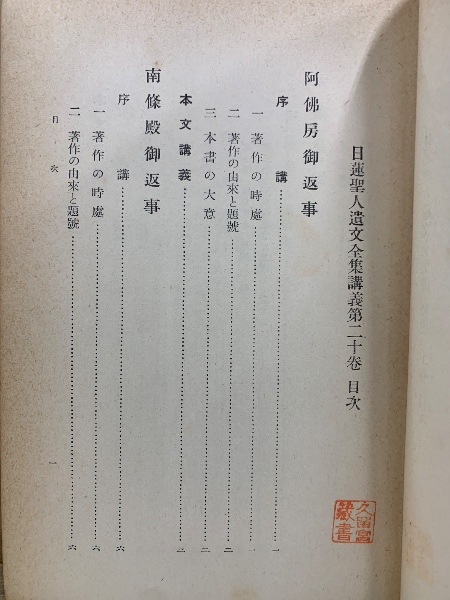 日蓮聖人遺文全集講義第二十卷 目次
阿佛房御返事
序講……一
一 著作の時處……一
二 著作の由來と題號……二
三 本書の大意……二
本文講義……三
南條殿御返事
序講……六
一 著作の時處……六
二 著作の由來と題號……六
目次
一
久留宮藏書